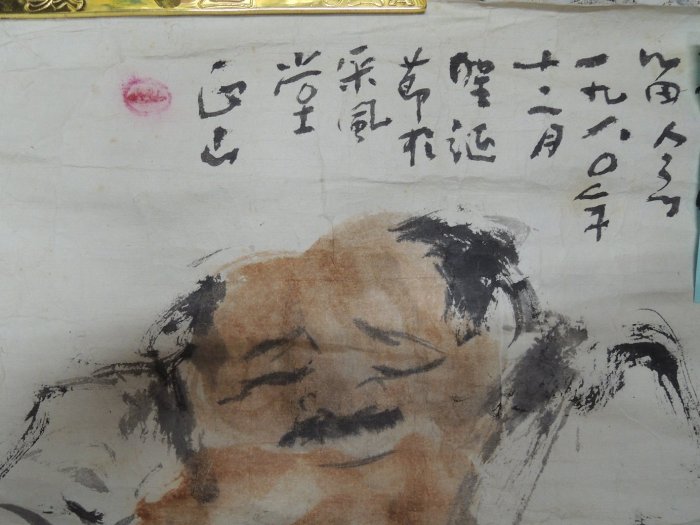 一九八〇年
十二月
聖誕
節於
采風
堂
正山